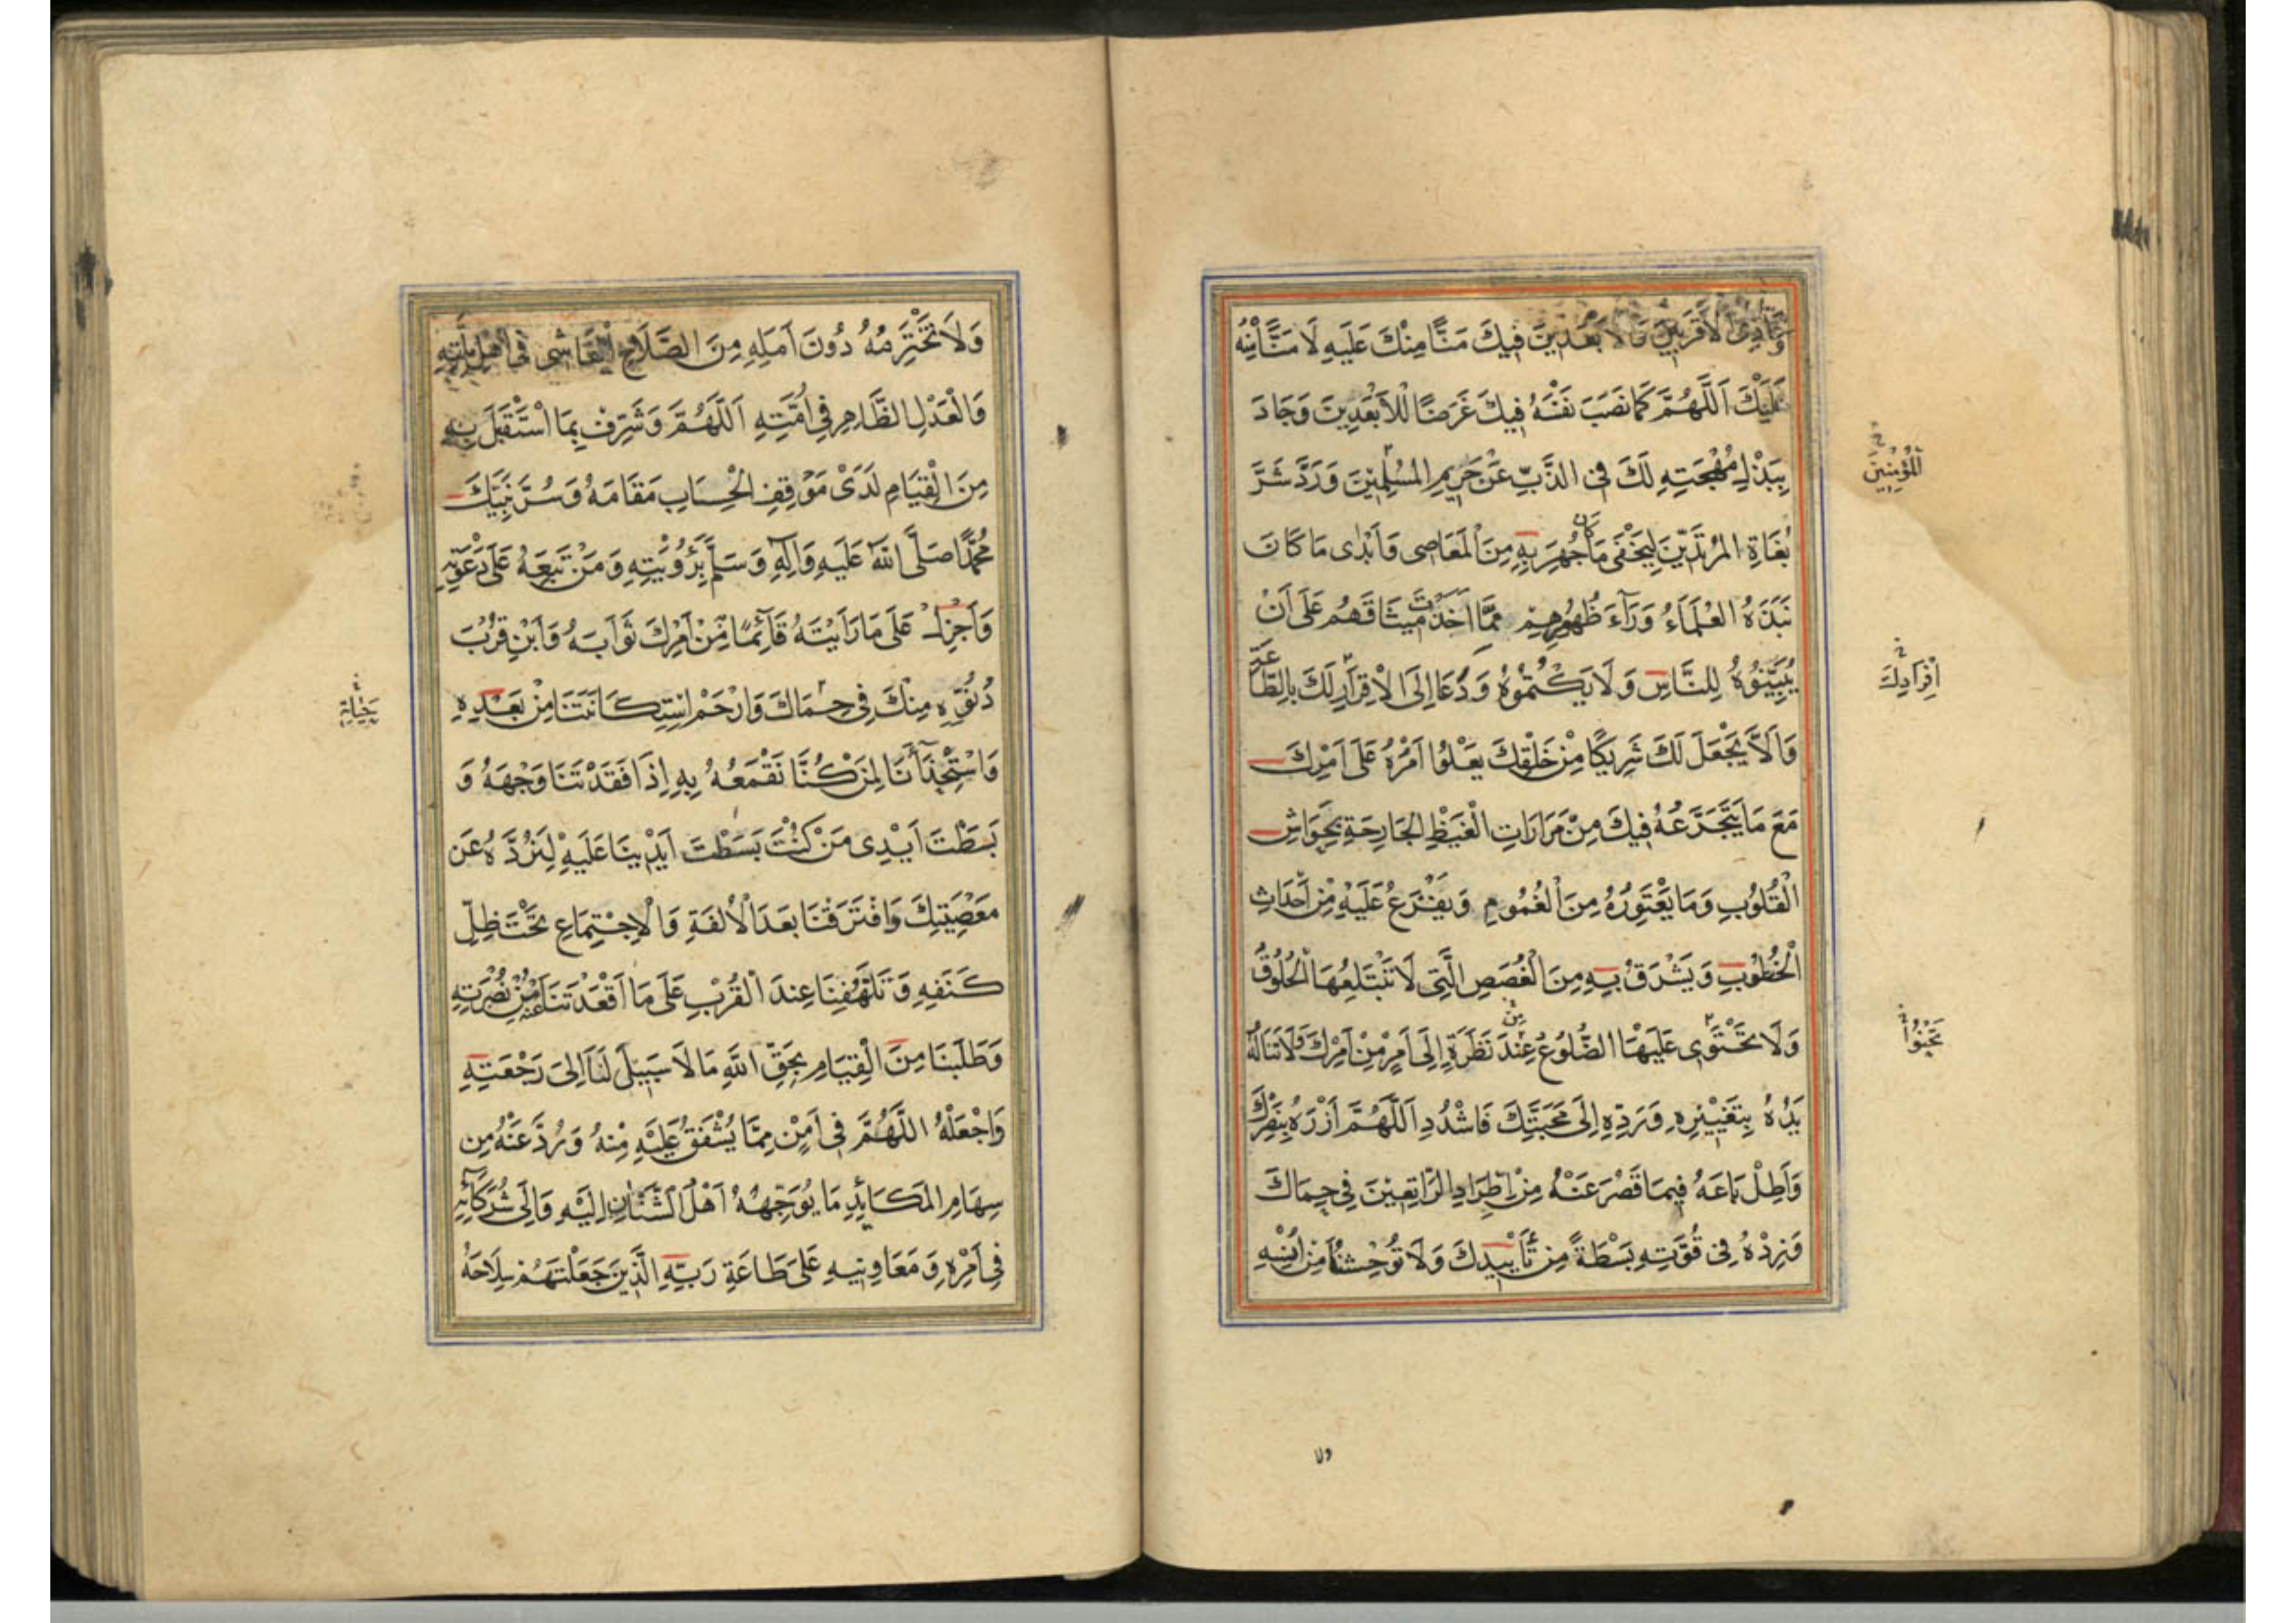 وَعَادَى الْأَقْرَبِينَ وَالْأَبْعَدِينَ فِيكَ مَنًّا مِنْكَ عَلَيْهِ لَا مَنًّا مِنْهُ
عَلَيْكَ اَللّٰهُمَّ كَمَا نَصَبَ نَفْسَهُ فِيكَ غَرَضًا لِلْأَبْعَدِينَ وَجَادَ
بِبَذْلِ مُهْجَتِهِ لَكَ فِي الذَّبِّ عَنْ حَرِيمِ الْمُسْلِمِينَ وَرَدَّ شَرَّ
بُغَاةِ الْمُرْتَدِّينَ لِيُخْفَى مَا كَانَ جُهِرَ بِهِ مِنَ الْمَعَاصِي وَأَبْدَى مَا كَانَ
نَبَذَهُ الْعُلَمَاءُ وَرَآءَ ظُهُورِهِمْ مِمَّا أَخَذْتَ مِيثَاقَهُمْ عَلَى أَنْ
يُبَيِّنُوهُ لِلنَّاسِ وَلَا يَكْتُمُوهُ وَدَعَا إِلَى الْإِقْرَارِ لَكَ بِالطَّاعَةِ
وَأَلَّا يَجْعَلَ لَكَ شَرِيكًا مِنْ خَلْقِكَ يَعْلُوا أَمْرُهُ عَلَى أَمْرِكَ
مَعَ مَا يَتَجَرَّعُهُ فِيكَ مِنْ مَرَارَاتِ الْغَيْظِ الْجَارِحَةِ بِحَوَاسِّ
الْقُلُوبِ وَمَا يَعْتَوِرُهُ مِنَ الْغُمُومِ وَيَفْزَعُ عَلَيْهِ مِنْ أَحْدَاثِ
الْخُطُوبِ وَيَشْرَقُ بِهِ مِنَ الْغُصَصِ الَّتِي لَا تَبْتَلِعُهَا الْحُلُوقُ
وَلَا تَحْتَوِي عَلَيْهَا الضُّلُوعُ عِنْدَ نَظَرَةٍ إِلَى أَمْرٍ مِنْ أَمْرِكَ وَلَا تَنَالُهُ
يَدُهُ بِتَغْيِيرِهِ وَرَدِّهِ إِلَى مَحَبَّتِكَ فَاشْدُدِ اَللّٰهُمَّ أَزْرَهُ بِنَصْرِكَ
وَأَطِلْ بَاعَهُ فِيمَا قَصُرَ عَنْهُ مِنْ إِطْرَادِ الرَّاتِعِينَ فِي حِمَاكَ
وَزِدْهُ فِي قُوَّتِهِ بَسْطَةً مِنْ تَأْيِيدِكَ وَلَا تُوحِشْنَا مِنْ أُنْسِهِ
اَلْمُؤْمِنِينَ
ولا
وَلَا تَخْتَرِمْهُ دُونَ أَمَلِهِ مِنَ الصَّلَاحِ الْفَاشِي فِي أَهْلِ مِلَّتِهِ
وَالْعَدْلِ الظَّاهِرِ فِي أُمَّتِهِ اَللّٰهُمَّ وَشَرِّفْ بِمَا اسْتَقْبَلَ بِهِ
مِنَ الْقِيَامِ لَدَى مَوْقِفِ الْحِسَابِ مَقَامَهُ وَسُرَّ نَبِيَّكَ
مُحَمَّدًا صَلَّى اللهُ عَلَيْهِ وَآلِهِ وَسَلَّمَ بِرُؤْيَتِهِ وَمَنْ تَبِعَهُ عَلَى دَعْوَتِهِ
وَأَجْزِلْ عَلَى مَا رَأَيْتَهُ قَآئِمًا مِنْ أَمْرِكَ ثَوَابَهُ وَابْنِ قُرْبَ
دُنُوِّهِ مِنْكَ فِي حِمَاكَ وَارْحَمْ اسْتِكَانَتَنَا مِنْ بَعْدِهِ
وَاسْتِخْذَآئَنَا لِمَنْ كُنَّا نَقْمَعُهُ بِهِ إِذَا فَقَدْتَنَا وَجْهَهُ وَ
بَسَطْتَ أَيْدِي مَنْ كُنْتَ بَسَطْتَ أَيْدِيَنَا عَلَيْهِ لِنَرُدَّهُ عَنْ
مَعْصِيَتِكَ وَافْتَرَقْنَا بَعْدَ الْأُلْفَةِ وَالْإِجْتِمَاعِ تَحْتَ ظِلِّ
كَنَفِهِ وَتَلَهُّفِنَا عِنْدَ الْقُرْبِ عَلَى مَا أَقْعَدْتَنَا عَنْهُ مِنْ نُصْرَتِهِ
وَطَلَبْنَا مِنَ الْقِيَامِ بِحَقِّ اللهِ مَا لَا سَبِيلَ لَنَا إِلَى رَجْعَتِهِ
وَاجْعَلْهُ اللّٰهُمَّ فِي أَمْنٍ مِمَّا يُشْفَقُ عَلَيْهِ مِنْهُ وَرُدَّ عَنْهُ مِنْ
سِهَامِ الْمَكَائِدِ مَا يُوَجِّهُهُ أَهْلُ الشَّنَآنِ إِلَيْهِ وَإِلَى شُرَكَآئِهِ
فِي أَمْرِهِ وَمُعَاوِنِيهِ عَلَى طَاعَةِ رَبِّهِ الَّذِينَ جَعَلْتَهُمْ سِلَاحَهُ